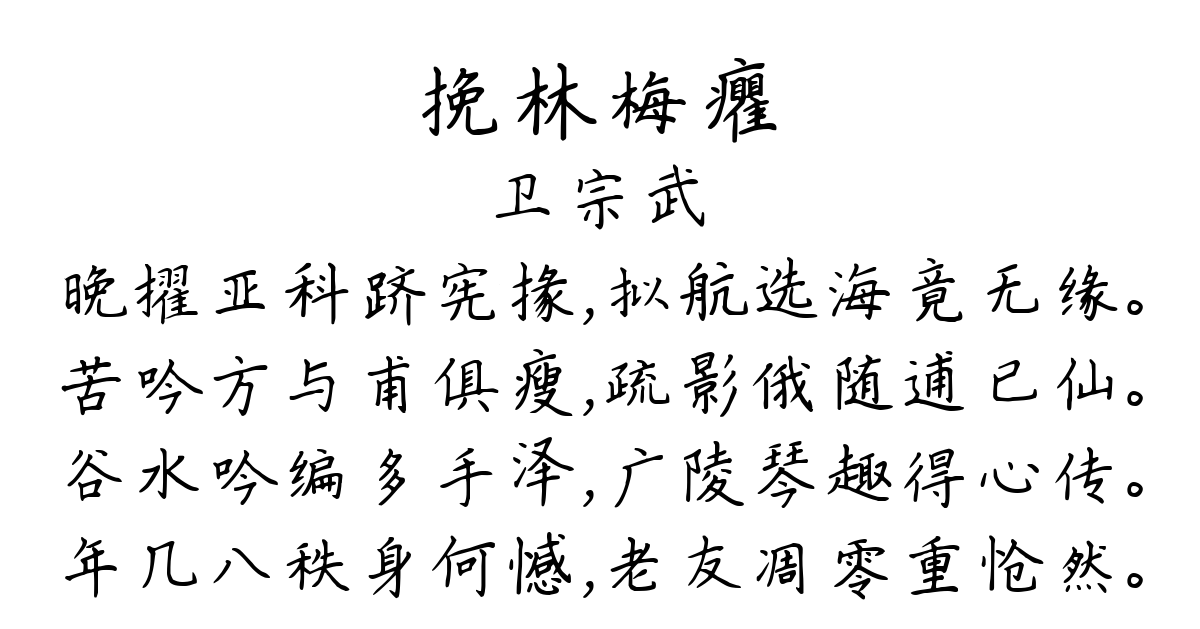 挽林梅癯
卫宗武
晚擢亚科跻宪掾,拟航选海竟无缘。
苦吟方与甫俱瘦,疏影俄随逋已仙。
谷水吟编多手泽,广陵琴趣得心传。
年几八秩身何憾,老友凋零重怆然。